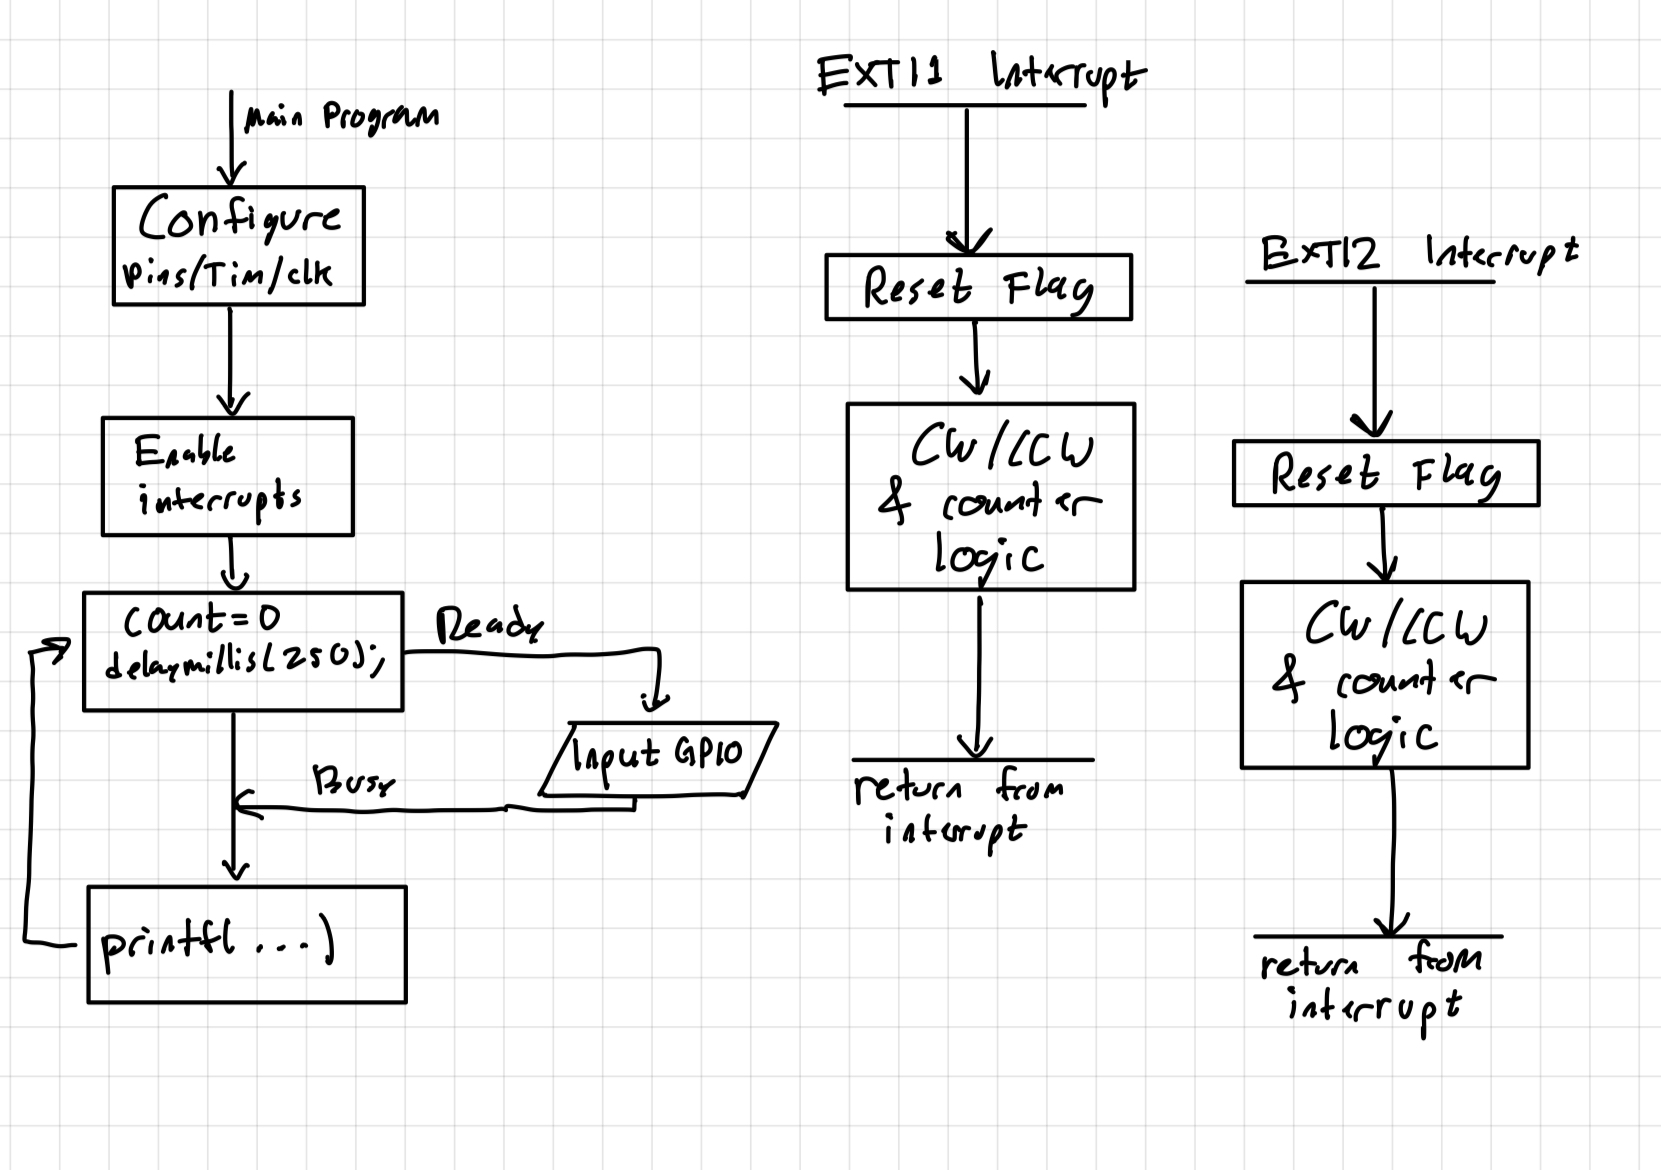 Main Program
Configure
Pins/Tim/clk
Enable
interrupts
count=0
delaymillis(250);
Ready
Input GPIO
Busy
printf( ...)
EXTI1 Interrupt
Reset Flag
CW/CCW
& counter
logic
return from
interrupt
EXTI2 Interrupt
Reset Flag
CW/CCW
& counter
logic
return from
interrupt